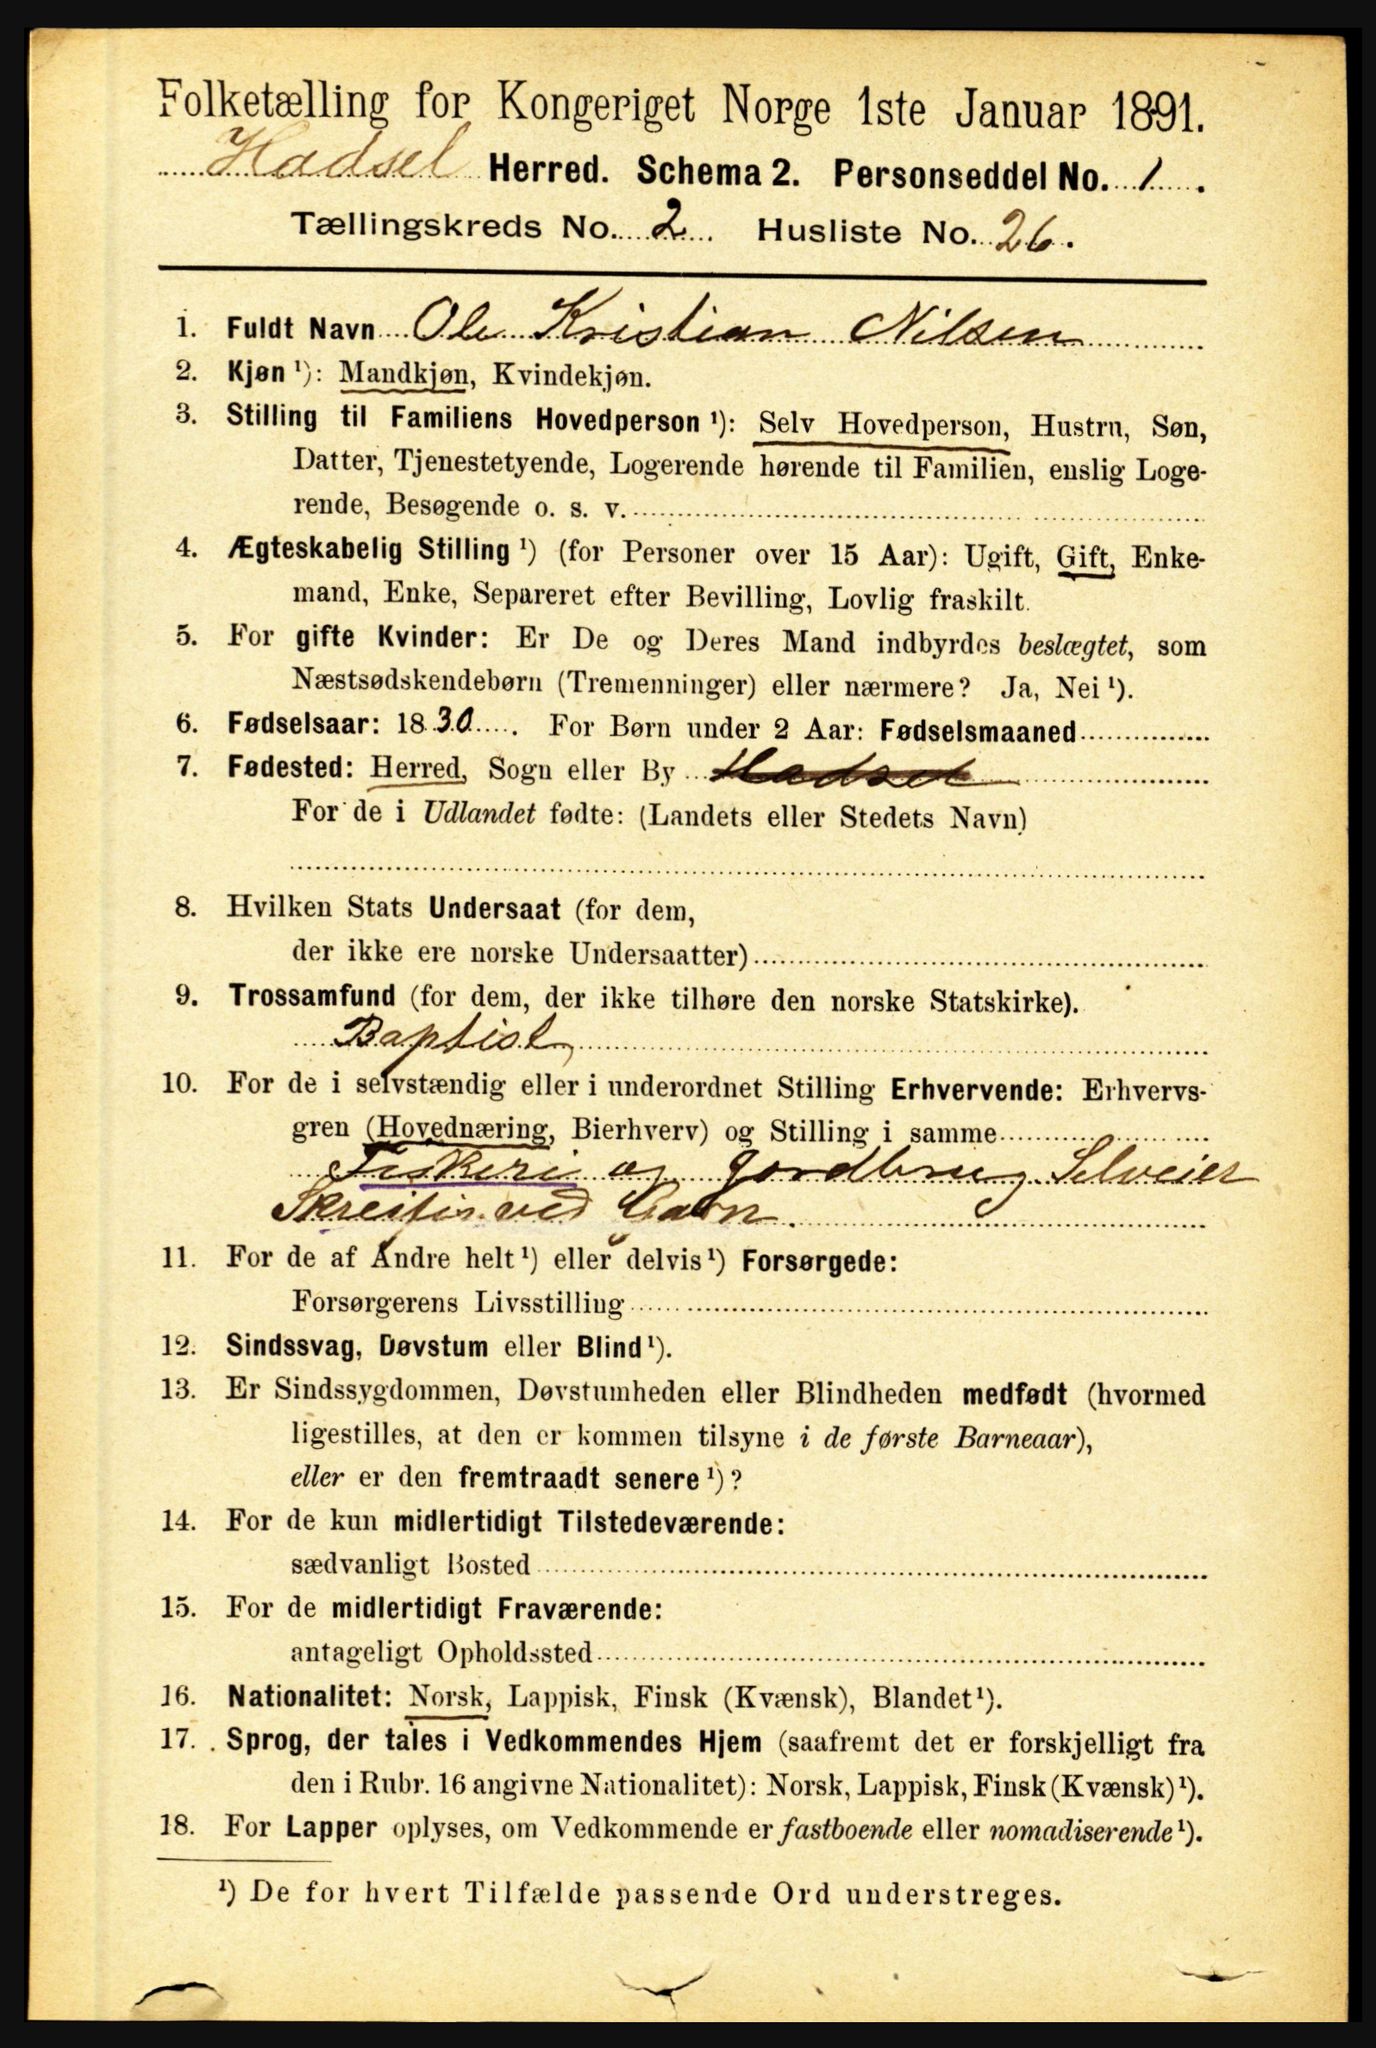 Folketælling for Kongeriget Norge 1ste Januar 1891.
Hadsel Herred. Schema 2. Personseddel No. 1.
Tællingskreds No. 2 Husliste No. 26.
1. Fuldt Navn Ole Kristian Nilsen
2. Kjøn ¹): Mandkjøn, Kvindekjøn.
3. Stilling til Familiens Hovedperson ¹): Selv Hovedperson, Hustru, Søn,
Datter, Tjenestetyende, Logerende hørende til Familien, enslig Loge-
rende, Besøgende o. s. v.
4. Ægteskabelig Stilling ¹) (for Personer over 15 Aar): Ugift, Gift, Enke-
mand, Enke, Separeret efter Bevilling, Lovlig fraskilt.
5. For gifte Kvinder: Er De og Deres Mand indbyrdes beslægtet, som
Næstsødskendebørn (Tremenninger) eller nærmere? Ja, Nei ¹).
6. Fødselsaar: 1830. For Børn under 2 Aar: Fødselsmaaned
7. Fødested: Herred, Sogn eller By Hadsel
For de i Udlandet fødte: (Landets eller Stedets Navn)
8. Hvilken Stats Undersaat (for dem,
der ikke ere norske Undersaatter)
9. Trossamfund (for dem, der ikke tilhøre den norske Statskirke).
Baptist
10. For de i selvstændig eller i underordnet Stilling Erhvervende: Erhvervs-
gren (Hovednæring, Bierhverv) og Stilling i samme
Fiskeri og Jordbrug Selveier
Skreifis. ved Garn
11. For de af Andre helt ¹) eller delvis ¹) Forsørgede:
Forsørgerens Livsstilling
12. Sindssvag, Døvstum eller Blind ¹).
13. Er Sindssygdommen, Døvstumheden eller Blindheden medfødt (hvormed
ligestilles, at den er kommen tilsyne i de første Barneaar),
eller er den fremtraadt senere ¹)?
14. For de kun midlertidigt Tilstedeværende:
sædvanligt Bosted
15. For de midlertidigt Fraværende:
antageligt Opholdssted
16. Nationalitet: Norsk, Lappisk, Finsk (Kvænsk), Blandet ¹).
17. Sprog, der tales i Vedkommendes Hjem (saafremt det er forskjelligt fra
den i Rubr. 16 angivne Nationalitet): Norsk, Lappisk, Finsk (Kvænsk) ¹).
18. For Lapper oplyses, om Vedkommende er fastboende eller nomadiserende ¹).
¹) De for hvert Tilfælde passende Ord understreges.